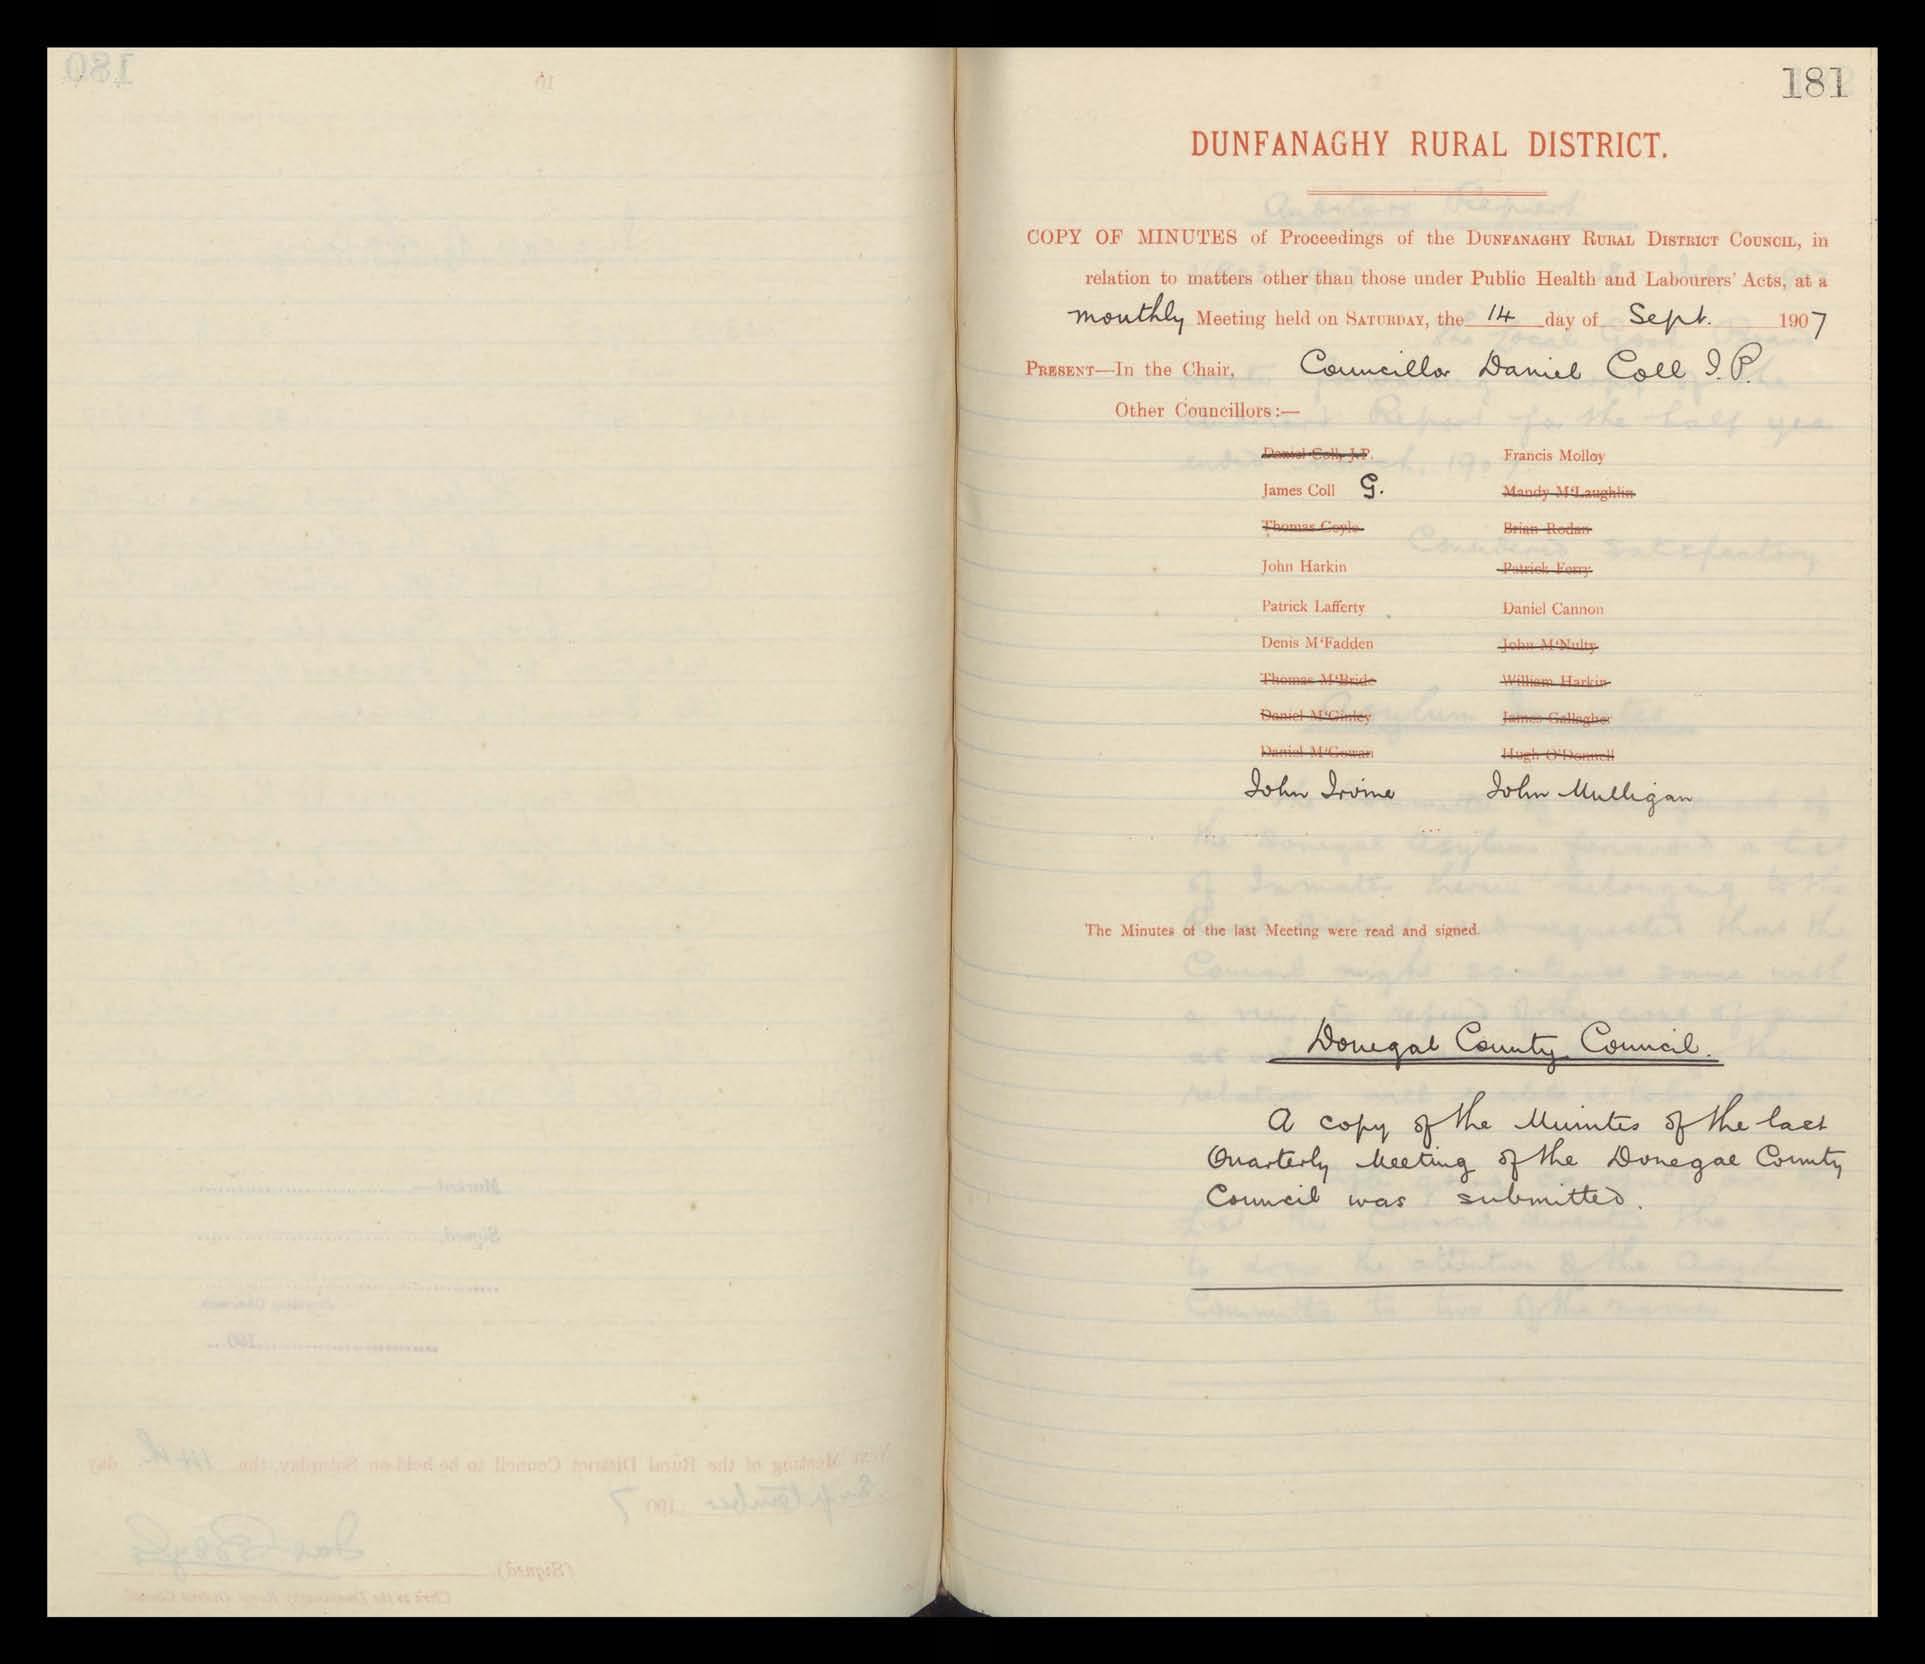 181
DUNFANAGHY RURAL DISTRICT.
COPY OF MINUTES of Proceedings of the DUNFANAGHY RURAL DISTRICT COUNCIL, in
relation to matters other than those under Public Health and Labourers' Acts, at a
monthly Meeting held on SATURDAY, the 14 day of Sept. 1907
PRESENT—In the Chair, Councillor Daniel Coll J.P.
Other Councillors:—
Daniel Coll, J.P. Francis Molloy
James Coll G. Mandy M'Laughlin
Thomas Coyle Brian Rodan
John Harkin Patrick Ferry
Patrick Lafferty Daniel Cannon
Denis M'Fadden John M'Nulty
Thomas M'Bride William Harkin
Daniel M'Ginley James Gallagher
Daniel M'Gowan Hugh O'Donnell
John Irvine John Mulligan
The Minutes of the last Meeting were read and signed.
Donegal County Council.
A copy of the Minutes of the last
Quarterly Meeting of the Donegal County
Council was submitted.